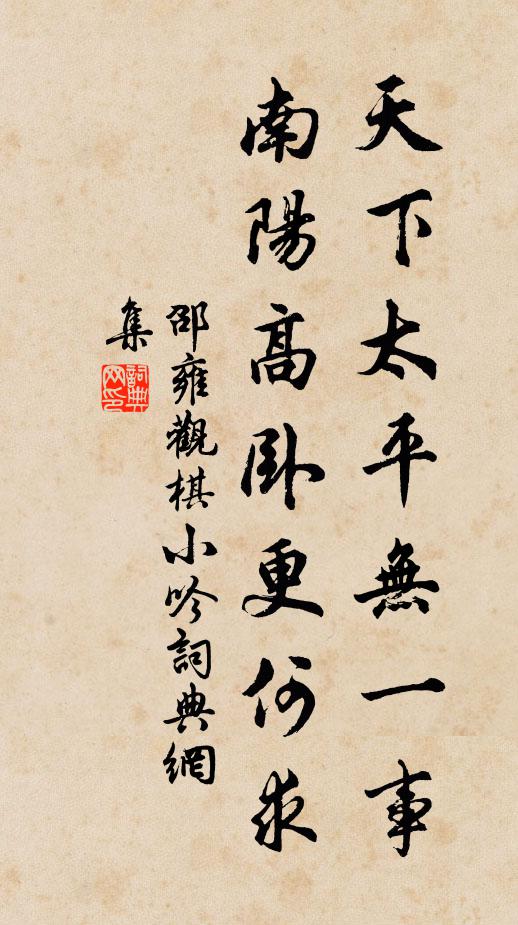 天下太平無一事
南陽高臥更何求
邵雍觀棋小吟詞典網
集
詞典
网印